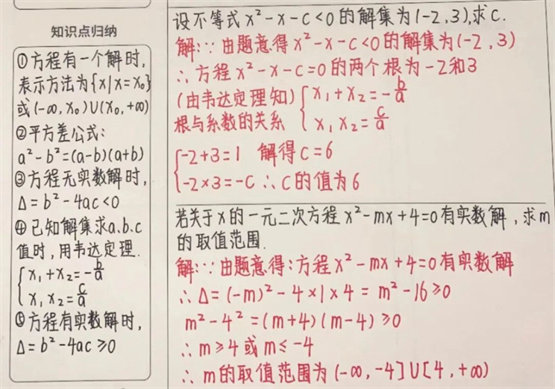 知识点归纳
①方程有一个解时,
表示方法为{x|x=x₀}
或(-∞,x₀)∪(x₀,+∞)
②平方差公式:
a²-b²=(a-b)(a+b)
③方程无实数解时,
Δ=b²-4ac<0
④已知解集求a.b.c
值时,用韦达定理.
{x₁+x₂=-b/a
x₁x₂=c/a
⑤方程有实数解时,
Δ=b²-4ac≥0
设不等式x²-x-c<0的解集为(-2,3),求c.
解:∵由题意得x²-x-c<0的解集为(-2,3)
∴方程x²-x-c=0的两个根为-2和3
(由韦达定理知) {x₁+x₂=-b/a
根与系数的关系 x₁x₂=c/a
{-2+3=1 解得c=6
-2×3=-c ∴c的值为6
若关于x的一元二次方程x²-mx+4=0有实数解,求m
的取值范围.
解:∵由题意得:方程x²-mx+4=0有实数解
∴Δ=(-m)²-4×1×4=m²-16≥0
m²-4²=(m+4)(m-4)≥0
∴m≥4或m≤-4
∴m的取值范围为(-∞,-4]∪[4,+∞)